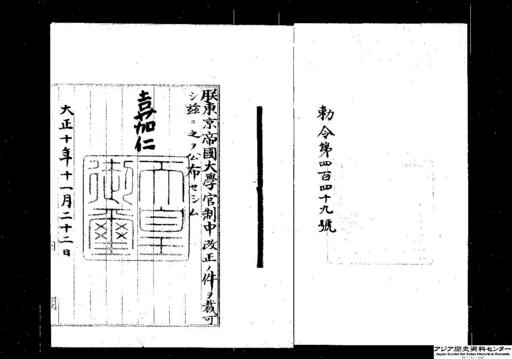 勅令第四百四十九號
朕東京帝國大學官制中改正ノ件ヲ裁可
シ茲ニ之ヲ公布セシム
嘉仁
天皇御璽
大正十年十一月二十二日
アジア歴史資料センター
Japan Center for Asian Historical Records